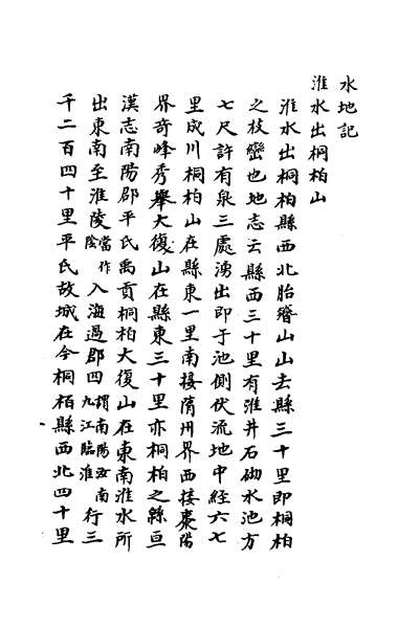 水地記
淮水出桐柏山
淮水出桐柏縣西北胎簪山山去縣三十里即桐柏
之枝巒也地志云縣西三十里有淮井石砌水池方
七尺許有泉三處湧出即于池側伏流地中經六七
里成川桐柏山在縣東一里南接隋州界西接棗陽
界奇峰秀舉大復山在縣東三十里亦桐柏之緜亘
漢志南陽郡平氏禹貢桐柏大復山在東南淮水所
出東南至淮陵當作陰入海過郡四謂南陽汝南九江臨淮行三
千二百四十里平氏故城在今桐柏縣西北四十里